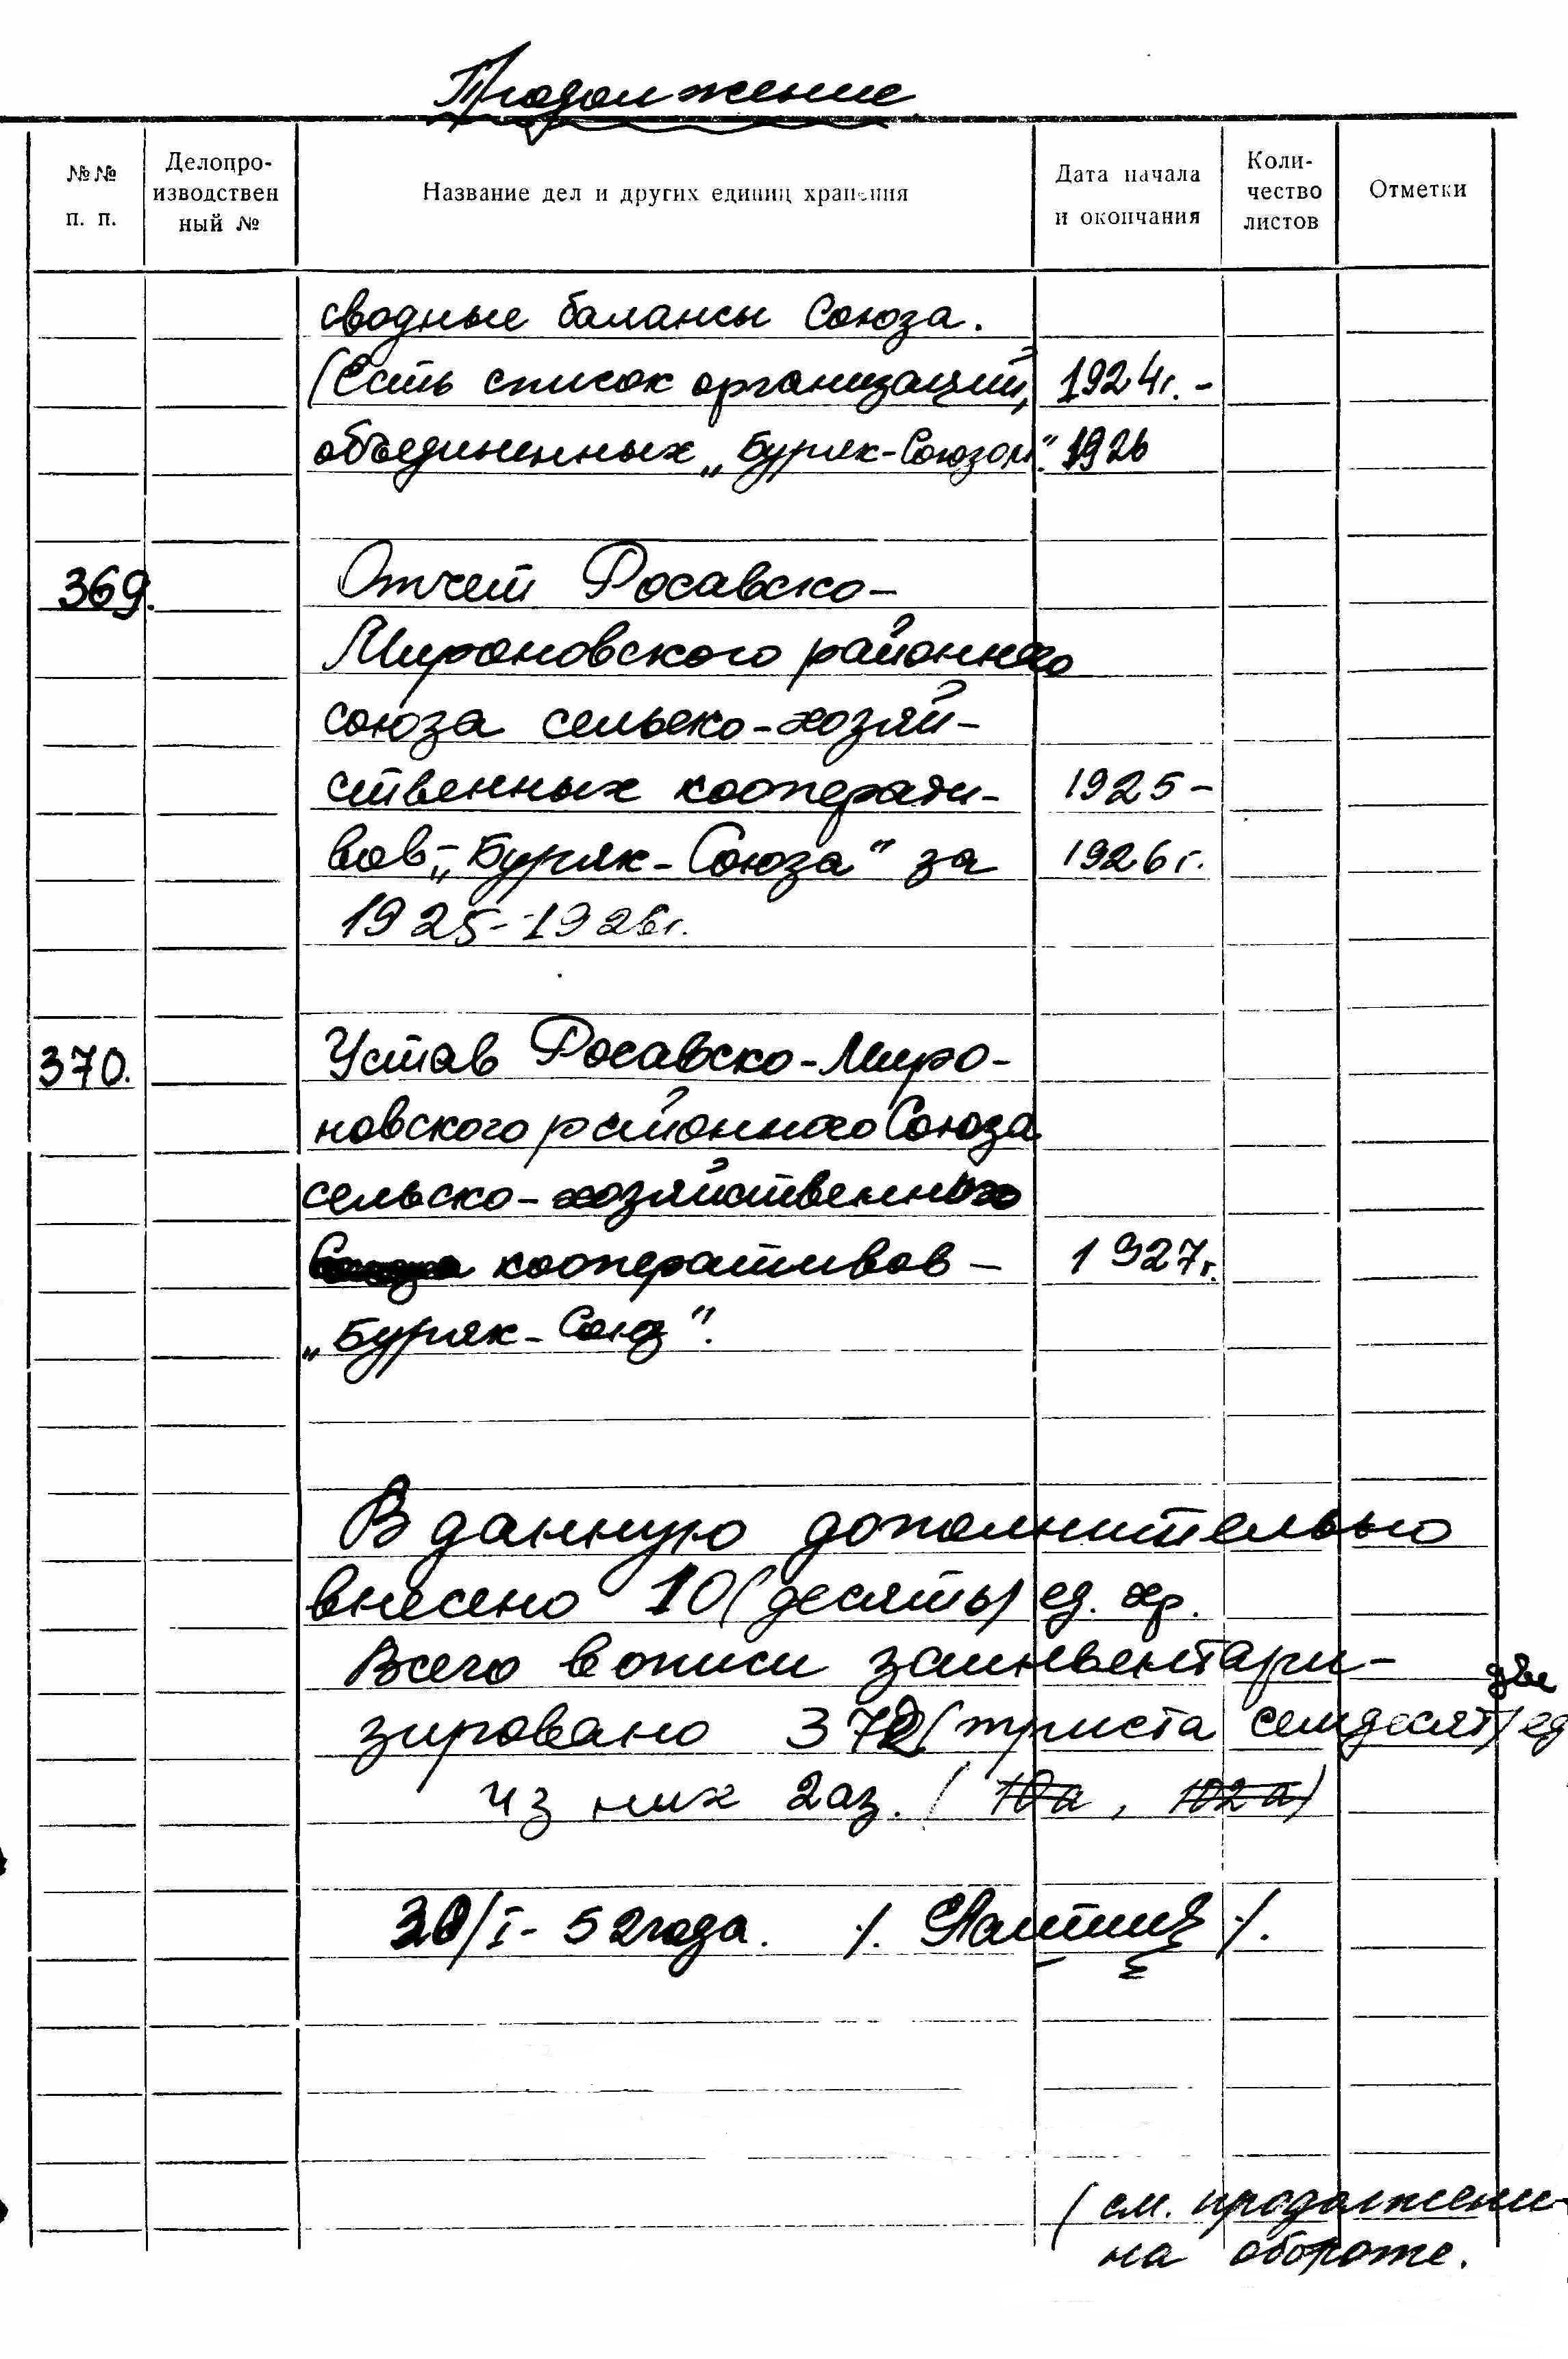 Продолжение
№№ п. п.
Делопро-
изводствен
ный №
Название дел и других единиц хранения
Дата начала
и окончания
Коли-
чество
листов
Отметки
сводные балансы Союза.
(Есть список организаций, 1924г. -
объединенных „Буряк-Союзом". 1926
369. Отчет Росавско-
Мироновского районного
союза сельско-хозяй-
ственных коопарати- 1925 -
вов-„Буряк-Союза" за 1926 г.
1925-1926г.
370. Устав Росавско-Миро-
новского районного Союза
сельско-хозяйственных
кооперативов - 1927г.
„Буряк-Союз".
В данную дополнительно
внесено 10 (десять) ед. хр.
Всего в описи заинвентари-
зировано 372 (триста семдесят две) ед
из них 2 аз. ( 10а , 102 а)
/I- 52 года. /. /.
(см. продолжени-
на обороте.